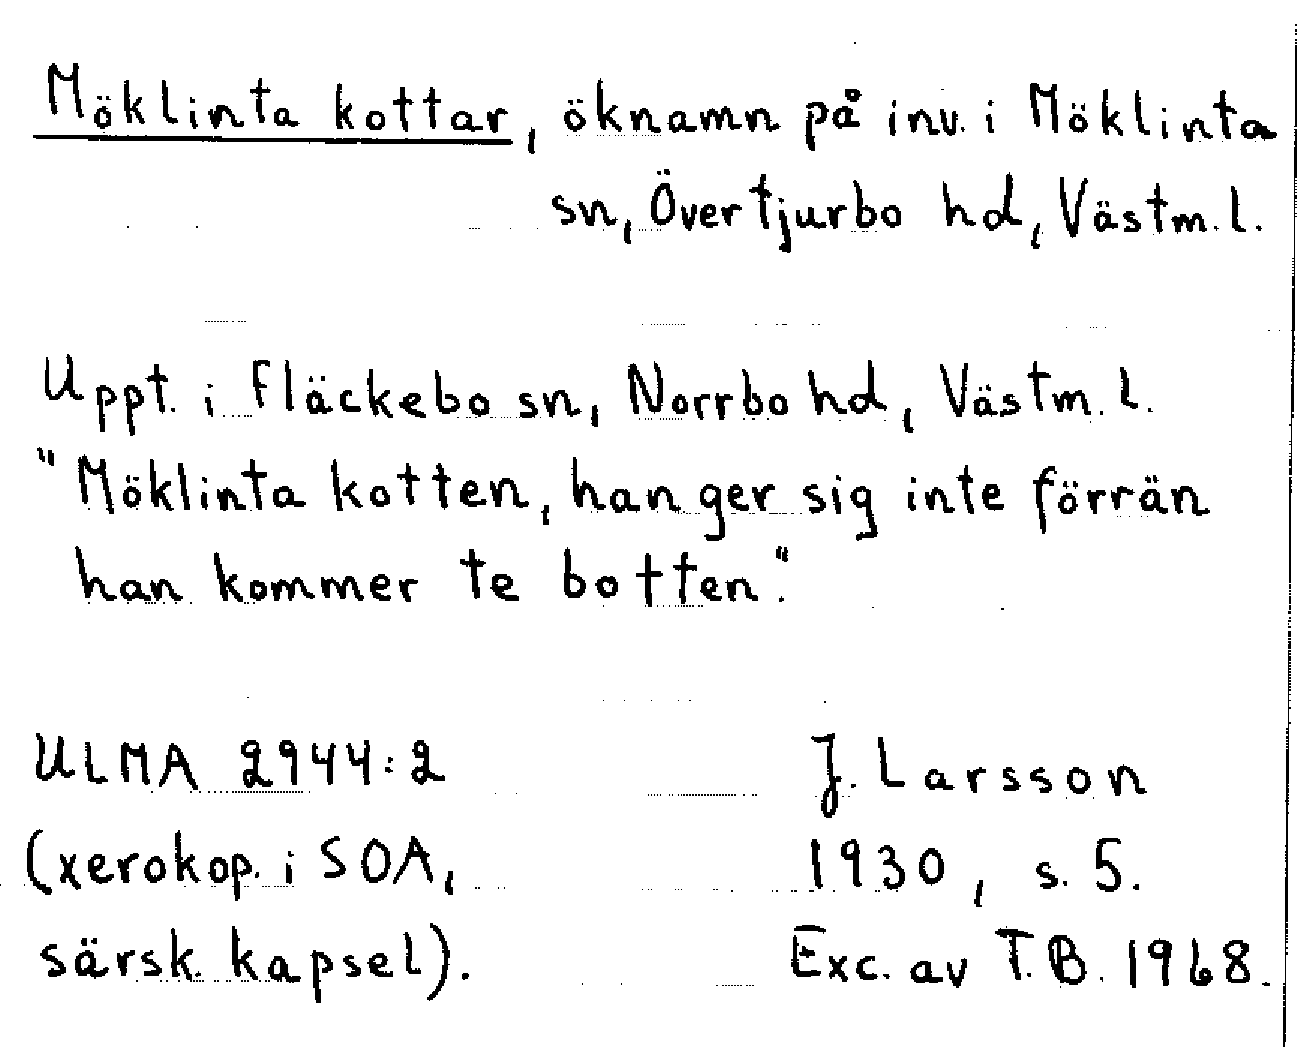 Möklinta kottar, öknamn på inv. i Möklinta
sn, Övertjurbo hd, Västm. l.
Uppt. i Fläckebo sn, Norrbo hd, Västm. l.
"Möklinta kotten, han ger sig inte förrän
han kommer te botten."
ULMA 2944:2
(xerokop. i SOA,
särsk. kapsel).
J. Larsson
1930, s. 5.
Exc. av T.B. 1968.